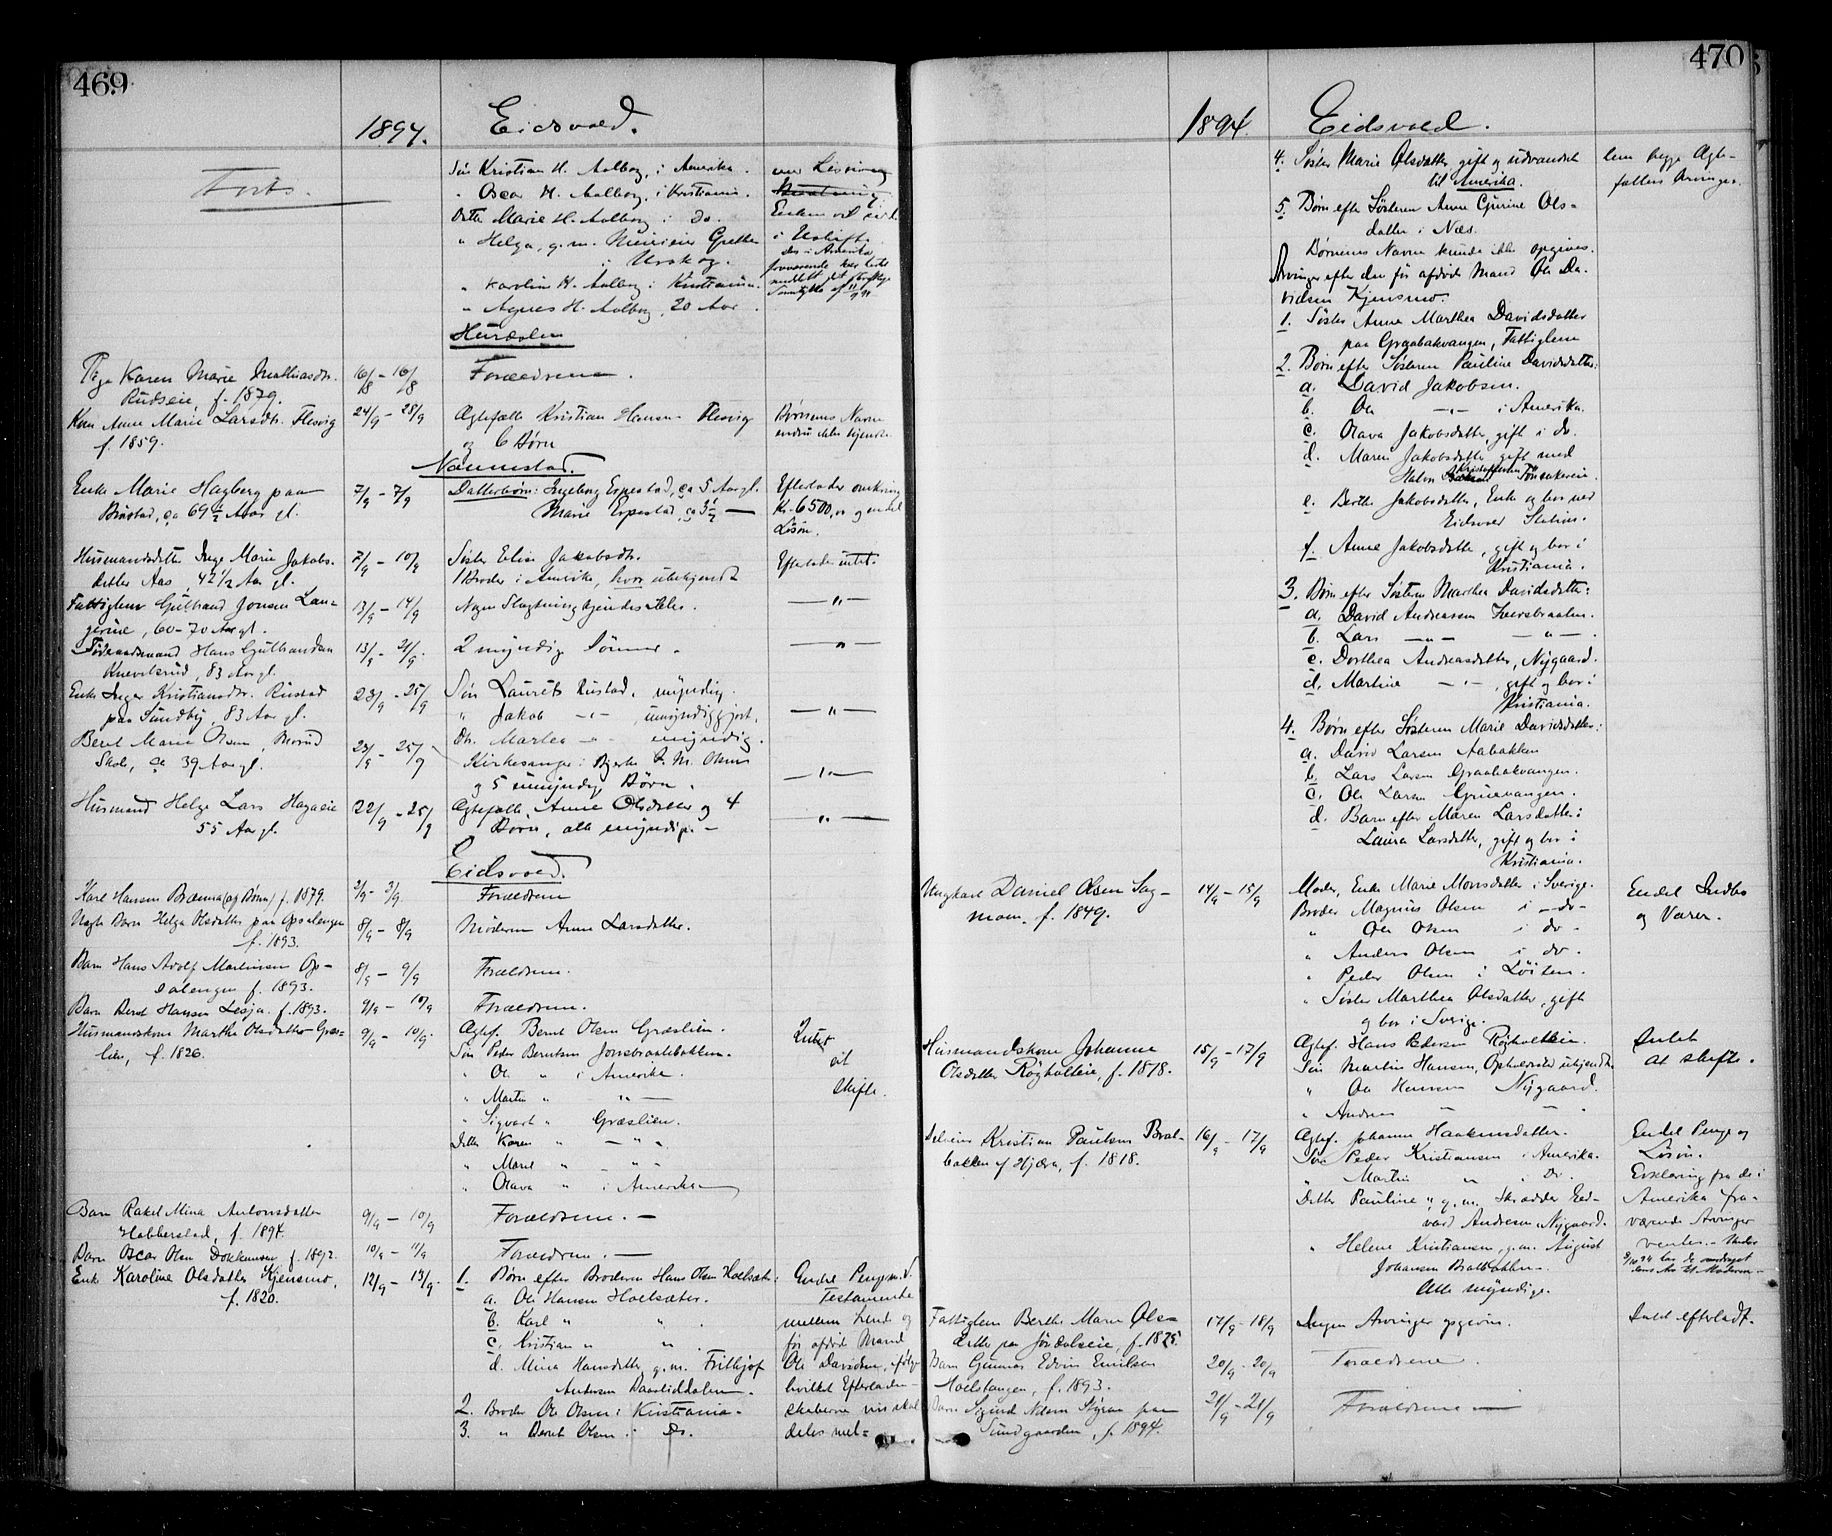 469
1894.
Eidsvold.
Forts.
Søn Kristian H. Aalborg, i Amerika.
" Oscar H. Aalborg, i Kristiania.
Dattr Marie H. Aalborg i do.
" Helga, g.m.
i Urskog.
" Karolin H. Aalborg i Kristiania.
" Agnes H. Aalborg, 20 Aar.
Enken vil sidde
i Uskifte.
Hurdalen
Pige Karen Marie Mathiasdtr.
Rudseie, f. 1879.
16/8 - 16/8
Forældrene.
Kone Anne Marie Larsdtr. Flesvig
f. 1859.
24/9 - 28/9
Ægtefælle Kristian Hansen Flesvig
og 6 Børn
Børnenes Navne
endnu ikke kjendte
Nannestad.
Enke Marie Hagberg paa
Bustad, ca 69 1/2 Aar gl.
7/9 - 7/9
Datterbørn: Ingeborg Espestad, ca 5 Aar gl.
Marie Espestad, ca 3 1/2 —
Efterlader omkring
Kr. 6500,00 og endel
Løsøre.
Husmandsdatter Inge Marie Jakobs-
datter Aas, 42 1/2 Aar gl.
7/9 - 10/9
Søster Elise Jakobsdtr.
1 Broder i Amerika, hvor ubekjendt
Efterlader intet.
Fattiglem Gulbrand Jonsen Lan-
gerud, 60-70 Aar gl.
13/9 - 14/9
Nogen Slægtning kjendes ikke.
— " —
Føderaadsmand Hans Gulbrandsen
Knevelsrud, 83 Aar gl.
13/9 - 21/9.
2 myndige Sønner.
— " —
Enke Inger Kristiansdtr. Rustad
paa Sundby, 83 Aar gl.
23/9 - 25/9
Søn Laurits Rustad, myndig.
" Jakob — " — , umyndiggjort.
Dtr. Marthea — " — myndig.
— " —
Beret Marie Olsen, Morud
Skole, ca 39 Aar gl.
23/9 - 25/9
Kirkesanger i Bjerke
og 5 umyndig Børn.
— " —
Husmand Helge Lars Hagaeie
55 Aar gl.
22/9 - 25/9
Ægtefælle, Anne Olsdatter og 4
Børn, alle myndige. —
— " —
Eidsvold.
Karl Hansen Brænna (af Bønn) f. 1879.
3/9 - 3/9
Forældrene
Uægte Barn Helga Olsdatter paa Opsalengen
f. 1893.
8/9 - 8/9
Moderen Anne Larsdatter.
Barn Hans Adolf Martinsen Op-
salengen f. 1893.
8/9 - 9/9
Forældrene.
Barn Bernt Hansen Lesja. f. 1893.
9/9 - 10/9
Forældrene.
Husmandskone Marthe Olsdatter Græs-
lien, f. 1826.
9/9 - 10/9.
Ægtef. Bernt Olsen Græslien.
Søn Peder Berntsen Jonsbraatebakken.
" Ole " i Amerika.
" Martin " " —
" Sigvart " Græslien.
Dattr Karen " — " .
" Marie " — " —
" Olava " i Amerika
Intet
at
skifte.
Barn Rakel Mina Antonsdatter
Habberstad, f. 1894.
9/9 - 10/9
Forældrene. —
Barn Oscar Olsen Dokkemoen f. 1892.
10/9 - 11/9
Forældrene. —
Enke Karoline Olsdatter Kjensmo,
f. 1820.
12/9 - 13/9.
1. Børn efter Broderen Hans Olsen Hoelsæter:
a. Ole Hansen Hoelsæter.
b. Karl " " .
c. Kristian " " .
d. Mina Hansdatter, g.m. Frithjof
Andersen Daastiddalen.
2. Broder Ole Olsen i Kristiania.
3. " Bernt Olsen. i Do.
Endel Penge m.v.
Testamente
mellem hende og
før afdød Mand
Ole Davidsen, ifølge
hvilket Efterladen-
skaberne vis skal
deles mel-
470
1894.
Eidsvold.
4. Søster Marie Olsdatter gift og udvandret
til Amerika.
5. Børn efter Søsteren Anne Gurine Ols-
datter i Næs.
Børnenes Navne kunde ikke opgives.
Arvinger efter den før afdøde Mand Ole Da-
vidsen Kjensmo.
1. Søster Anne Marthea Davidsdatter
paa Graabakvangen, Fattiglem
2. Børn efter Søsteren Pauline Davidsdatter:
a. David Jakobsen.
b. Ole — " — i Amerika.
c. Olava Jakobsdatter, gift i do.
d. Maren Jakobsdatter gift med
Halvor Kristoffersen Tønsakereie.
e. Berthe Jakobsdatter, Enke og bor ved
Eidsvold Station.
f. Anne Jakobsdatter, gift og bor i
Kristiania.
3. Børn efter Søsteren Marthea Davidsdatter:
a. David Andreassen
b. Lars — " — — " — .
c. Dorthea Andreasdatter, Nygaard.
d. Martine — " — , gift og bor i
Kristiania.
4. Børn efter Søsteren Marie Davidsdatter:
a. David Larsen Aabakken
b. Lars Larsen Graabakvangen.
c. Ole Larsen Gruevangen.
d. Barn efter Maren Larsdatter:
Laura Larsdatter, gift og bor i
Kristiania.
lem begge Ægte-
fællers Arvinger.
Ungkarl Daniel Olsen Sag-
moen. f. 1849.
14/9 - 15/9
Moder, Enke Marie Monsdatter i Sverige.
Broder Magnus Olsen i — do —
" Ole Olsen i do -
" Anders Olsen i do.
" Peder Olsen i Løiten.
" Søster Marthea Olsdatter, gift
og bor i Sverige.
Endel Indbo
og Varer.
Husmandskone Johanne
Olsdatter Røgholteie, f. 1818.
15/9 - 17/9
Ægtef. Hans Edersen Røgholteie.
Søn Martin Hansen, Opholdssted ubekjendt
" Ole Hansen Nygaard.
" Andreas " " .
Intet
at skifte.
Selveier Kristian Paulsen Bral-
bakken af Hjæra, f. 1818.
16/9 - 17/9
Ægtef. Johanne Haakensdatter.
Søn Peder Kristiansen i Amerika.
" Martin " i Do.
Dattr Pauline ", g.m. Skrædder Ed-
vard Andersen Nygaard.
" Helene Kristiansen, g.m. August
Johansen Bralbakken.
Alle myndige.
Endel Penge og
Løsøre.
Erklæring fra de i
Amerika fra-
værende Arvinger
ventes.
Fattiglem Berthe Marie Ols-
datter paa Jøndalseie, f. 1825.
17/9 - 18/9
Ingen Arvinger opgivne.
Intet efterladt.
Barn Gunnar Edvin Emilsen
Hoelstangen, f. 1893.
20/9 - 20/9
Forældrene.
Barn Sigurd Nilsen Styren paa
Sundgaarden, f. 1894.
21/9 - 21/9
Forældrene —